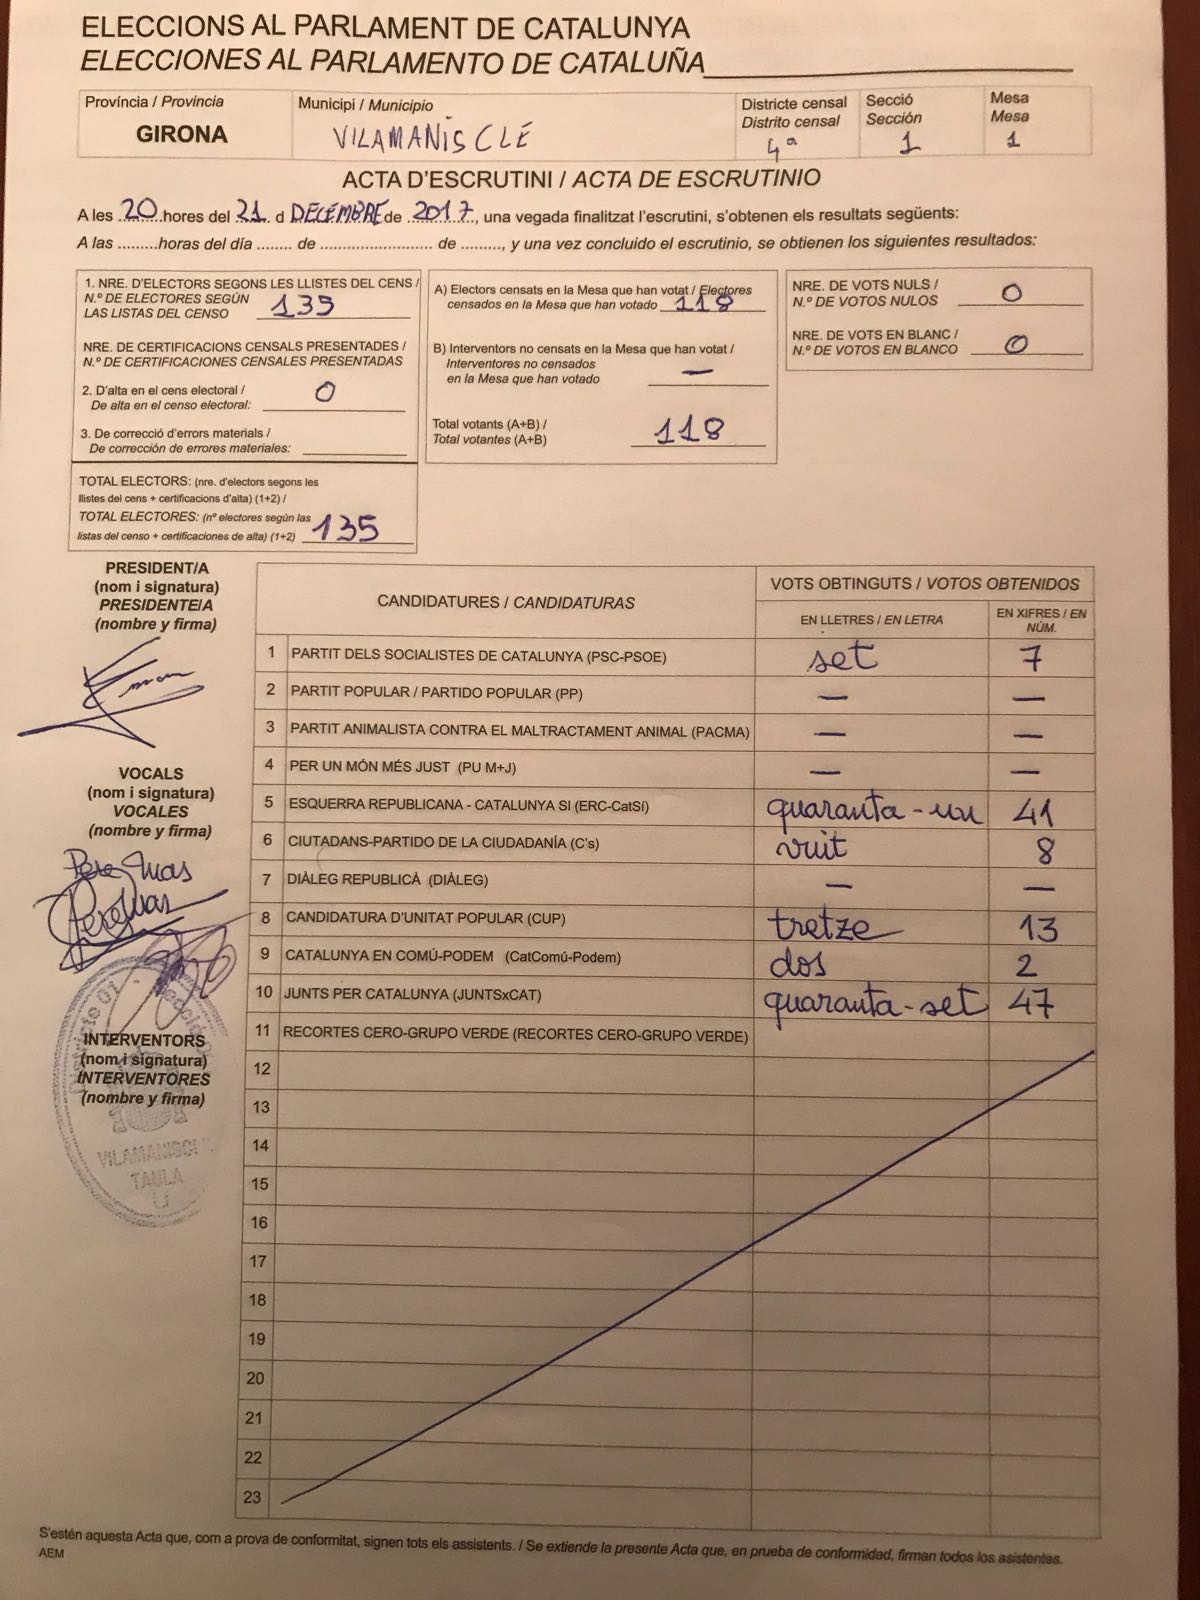 ELECCIONS AL PARLAMENT DE CATALUNYA
ELECCIONES AL PARLAMENTO DE CATALUÑA
Província / Provincia
GIRONA
Municipi / Municipio
VILAMANISCLE
Districte censal
Distrito censal
4ª
Secció
Sección
1
Mesa
Mesa
1
ACTA D'ESCRUTINI / ACTA DE ESCRUTINIO
A les ..20.. hores del 21. d DECEMBRE de ..2017.., una vegada finalitzat l'escrutini, s'obtenen els resultats següents:
A las .........horas del día ........ de ........................ de ........., y una vez concluido el escrutinio, se obtienen los siguientes resultados:
1. NRE. D'ELECTORS SEGONS LES LLISTES DEL CENS /
N.º DE ELECTORES SEGÚN
LAS LISTAS DEL CENSO 135
NRE. DE CERTIFICACIONS CENSALS PRESENTADES /
N.º DE CERTIFICACIONES CENSALES PRESENTADAS
2. D'alta en el cens electoral /
De alta en el censo electoral: 0
3. De correcció d'errors materials /
De corrección de errores materiales:
TOTAL ELECTORS: (nre. d'electors segons les
llistes del cens + certificacions d'alta) (1+2) /
TOTAL ELECTORES: (nº electores según las
listas del censo + certificaciones de alta) (1+2) 135
A) Electors censats en la Mesa que han votat / Electores
censados en la Mesa que han votado 118
B) Interventors no censats en la Mesa que han votat /
Interventores no censados
en la Mesa que han votado —
Total votants (A+B) /
Total votantes (A+B) 118
NRE. DE VOTS NULS /
N.º DE VOTOS NULOS 0
NRE. DE VOTS EN BLANC /
N.º DE VOTOS EN BLANCO 0
PRESIDENT/A
(nom i signatura)
PRESIDENTE/A
(nombre y firma)
VOCALS
(nom i signatura)
VOCALES
(nombre y firma)
Pere Mas
Pere Mas
INTERVENTORS
(nom i signatura)
INTERVENTORES
(nombre y firma)
Districte 01
VILAMANISCL
TAULA
U
CANDIDATURES / CANDIDATURAS
VOTS OBTINGUTS / VOTOS OBTENIDOS
EN LLETRES / EN LETRA
EN XIFRES / EN NÚM.
1 PARTIT DELS SOCIALISTES DE CATALUNYA (PSC-PSOE) set 7
2 PARTIT POPULAR / PARTIDO POPULAR (PP) — —
3 PARTIT ANIMALISTA CONTRA EL MALTRACTAMENT ANIMAL (PACMA) — —
4 PER UN MÓN MÉS JUST (PU M+J) — —
5 ESQUERRA REPUBLICANA - CATALUNYA SI (ERC-CatSí) quaranta-un 41
6 CIUTADANS-PARTIDO DE LA CIUDADANÍA (C's) vuit 8
7 DIÀLEG REPUBLICÀ (DIÀLEG) — —
8 CANDIDATURA D'UNITAT POPULAR (CUP) tretze 13
9 CATALUNYA EN COMÚ-PODEM (CatComú-Podem) dos 2
10 JUNTS PER CATALUNYA (JUNTSxCAT) quaranta-set 47
11 RECORTES CERO-GRUPO VERDE (RECORTES CERO-GRUPO VERDE)
12
13
14
15
16
17
18
19
20
21
22
23
S'estén aquesta Acta que, com a prova de conformitat, signen tots els assistents. / Se extiende la presente Acta que, en prueba de conformidad, firman todos los asistentes.
AEM